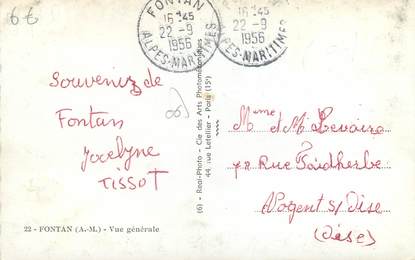 6€
FONTAN
16 H 45
22 - 9
1956
ALPES-MARITIMES
16 45
22 - 9
1956
PES-MARITIMES
Souvenirs de
Fontan
Jocelyne
TISSOT
22 - FONTAN (A.-M.) - Vue générale
(6) - Real-Photo - Cie des Arts Photomécaniques
44, rue Letellier - Paris (15e)
Mme et M
Rue Faidherbe
Nogent s/ Oise
(Oise)